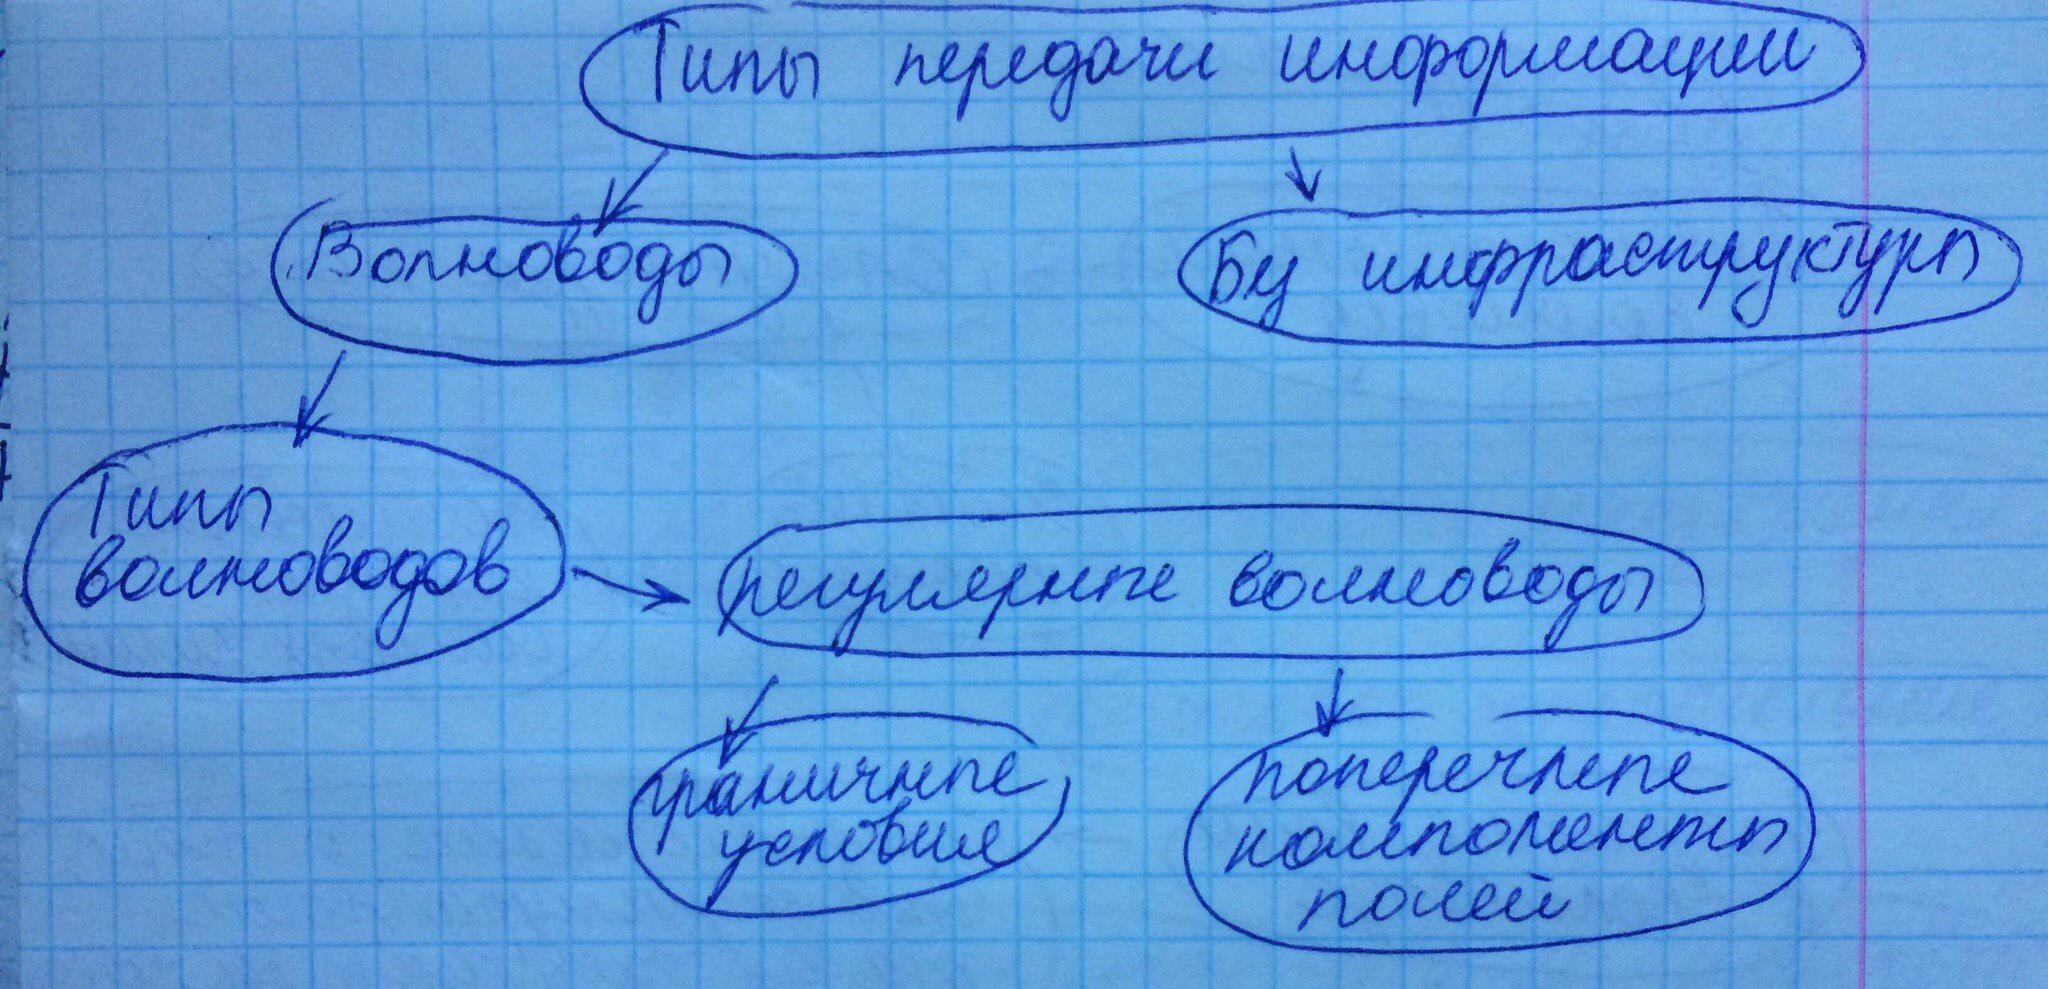 Типы передачи информации
Волноводы
Бу инфраструктуры
Типы
волноводов
регулярные волноводы
граничные
условия
поперечные
компоненты
полей